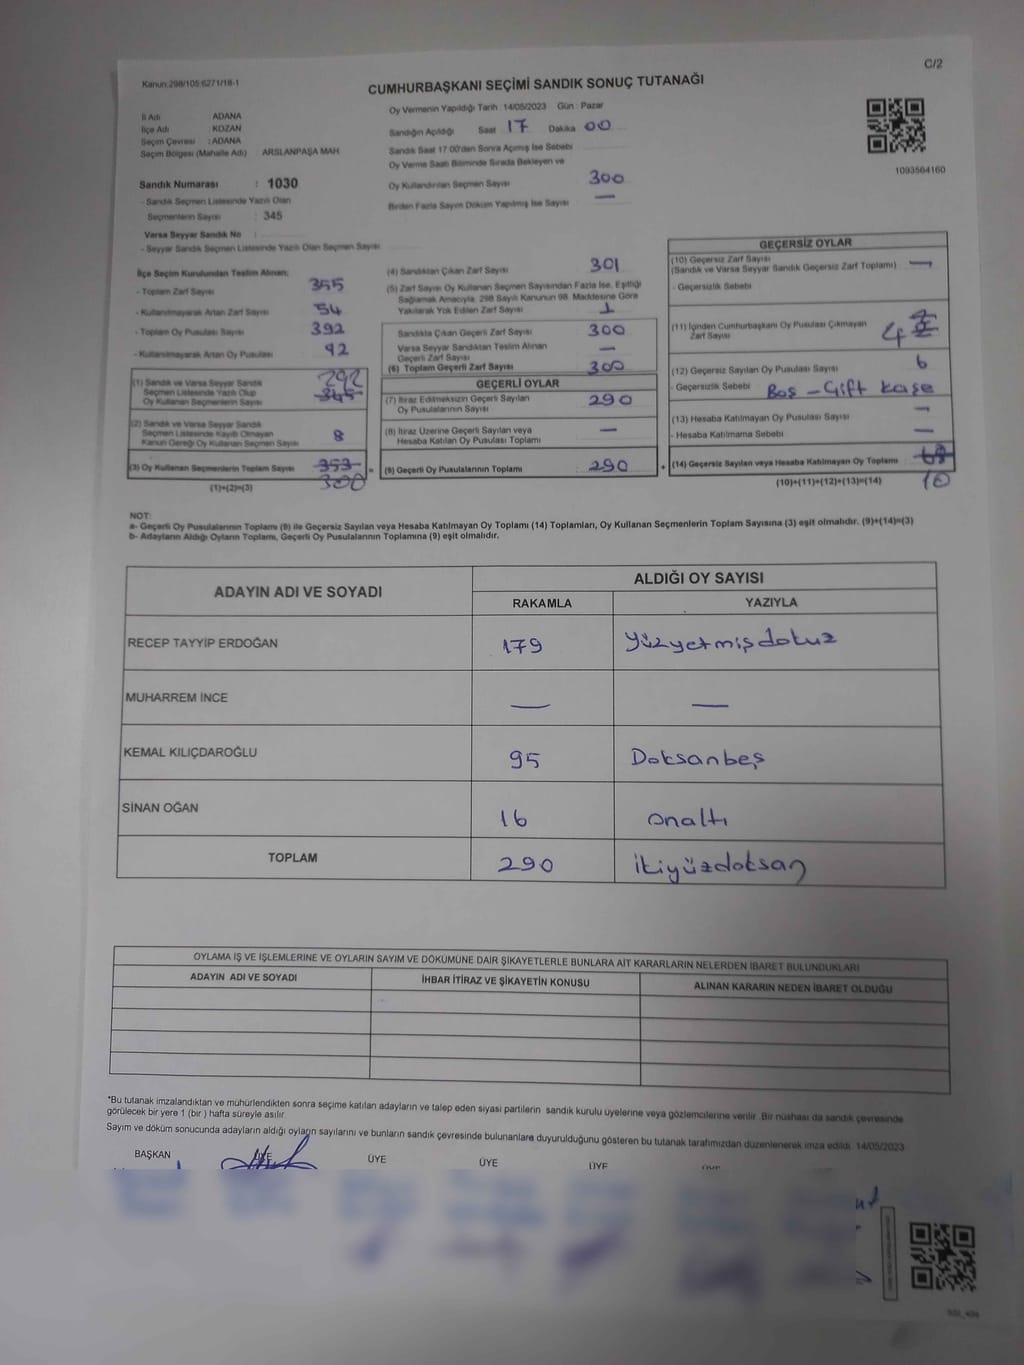 Kanun:298/105:6271/18-1
C/2
CUMHURBAŞKANI SEÇİMİ SANDIK SONUÇ TUTANAĞI
İl Adı : ADANA
İlçe Adı : KOZAN
Seçim Çevresi : ADANA
Seçim Bölgesi (Mahalle Adı) : ARSLANPAŞA MAH
Sandık Numarası : 1030
- Sandık Seçmen Listesinde Yazılı Olan
Seçmenlerin Sayısı : 345
Varsa Seyyar Sandık No :
- Seyyar Sandık Seçmen Listesinde Yazılı Olan Seçmen Sayısı
Oy Vermenin Yapıldığı Tarih : 14/05/2023 Gün : Pazar
Sandığın Açıldığı Saat 17 Dakika 00
Sandık Saat 17:00'den Sonra Açılmış İse Sebebi
Oy Verme Saati Bitiminde Sırada Bekleyen ve
Oy Kullandırılan Seçmen Sayısı 300
Birden Fazla Sayım Döküm Yapılmış İse Sayısı —
1093564160
İlçe Seçim Kurulundan Teslim Alınan;
- Toplam Zarf Sayısı 355
- Kullanılmayarak Artan Zarf Sayısı 54
- Toplam Oy Pusulası Sayısı 392
- Kullanılmayarak Artan Oy Pusulası 92
(1) Sandık ve Varsa Seyyar Sandık
Seçmen Listesinde Yazılı Olup
Oy Kullanan Seçmenlerin Sayısı 292 345
(2) Sandık ve Varsa Seyyar Sandık
Seçmen Listesinde Kayıtlı Olmayan
Kanun Gereği Oy Kullanan Seçmen Sayısı 8
(3) Oy Kullanan Seçmenlerin Toplam Sayısı 353 300
(1)+(2)=(3)
(4) Sandıktan Çıkan Zarf Sayısı 301
(5) Zarf Sayısı Oy Kullanan Seçmen Sayısından Fazla İse, Eşitliği
Sağlamak Amacıyla, 298 Sayılı Kanunun 98. Maddesine Göre
Yakılarak Yok Edilen Zarf Sayısı 1
Sandıkta Çıkan Geçerli Zarf Sayısı 300
Varsa Seyyar Sandıktan Teslim Alınan
Geçerli Zarf Sayısı —
(6) Toplam Geçerli Zarf Sayısı 300
GEÇERLİ OYLAR
(7) İtiraz Edilmeksizin Geçerli Sayılan
Oy Pusulalarının Sayısı 290
(8) İtiraz Üzerine Geçerli Sayılan veya
Hesaba Katılan Oy Pusulası Toplamı —
= (9) Geçerli Oy Pusulalarının Toplamı 290 +
GEÇERSİZ OYLAR
(10) Geçersiz Zarf Sayısı
(Sandık ve Varsa Seyyar Sandık Geçersiz Zarf Toplamı) —
- Geçersizlik Sebebi
(11) İçinden Cumhurbaşkanı Oy Pusulası Çıkmayan
Zarf Sayısı 4
(12) Geçersiz Sayılan Oy Pusulası Sayısı 6
- Geçersizlik Sebebi Boş - Çift kaşe
(13) Hesaba Katılmayan Oy Pusulası Sayısı —
- Hesaba Katılmama Sebebi —
(14) Geçersiz Sayılan veya Hesaba Katılmayan Oy Toplamı 10
(10)+(11)+(12)+(13)=(14)
NOT:
a- Geçerli Oy Pusulalarının Toplamı (9) ile Geçersiz Sayılan veya Hesaba Katılmayan Oy Toplamı (14) Toplamları, Oy Kullanan Seçmenlerin Toplam Sayısına (3) eşit olmalıdır. (9)+(14)=(3)
b- Adayların Aldığı Oyların Toplamı, Geçerli Oy Pusulalarının Toplamına (9) eşit olmalıdır.
ADAYIN ADI VE SOYADI ALDIĞI OY SAYISI
RAKAMLA YAZIYLA
RECEP TAYYİP ERDOĞAN 179 yüzyetmişdokuz
MUHARREM İNCE — —
KEMAL KILIÇDAROĞLU 95 Doksanbeş
SİNAN OĞAN 16 onaltı
TOPLAM 290 ikiyüzdoksan
OYLAMA İŞ VE İŞLEMLERİNE VE OYLARIN SAYIM VE DÖKÜMÜNE DAİR ŞİKAYETLERLE BUNLARA AİT KARARLARIN NELERDEN İBARET BULUNDUKLARI
ADAYIN ADI VE SOYADI İHBAR İTİRAZ VE ŞİKAYETİN KONUSU ALINAN KARARIN NEDEN İBARET OLDUĞU
*Bu tutanak imzalandıktan ve mühürlendikten sonra seçime katılan adayların ve talep eden siyasi partilerin sandık kurulu üyelerine veya gözlemcilerine verilir. Bir nüshası da sandık çevresinde
görülecek bir yere 1 (bir ) hafta süreyle asılır.
Sayım ve döküm sonucunda adayların aldığı oyların sayılarını ve bunların sandık çevresinde bulunanlara duyurulduğunu gösteren bu tutanak tarafımızdan düzenlenerek imza edildi. 14/05/2023
BAŞKAN ÜYE ÜYE ÜYE ÜYE